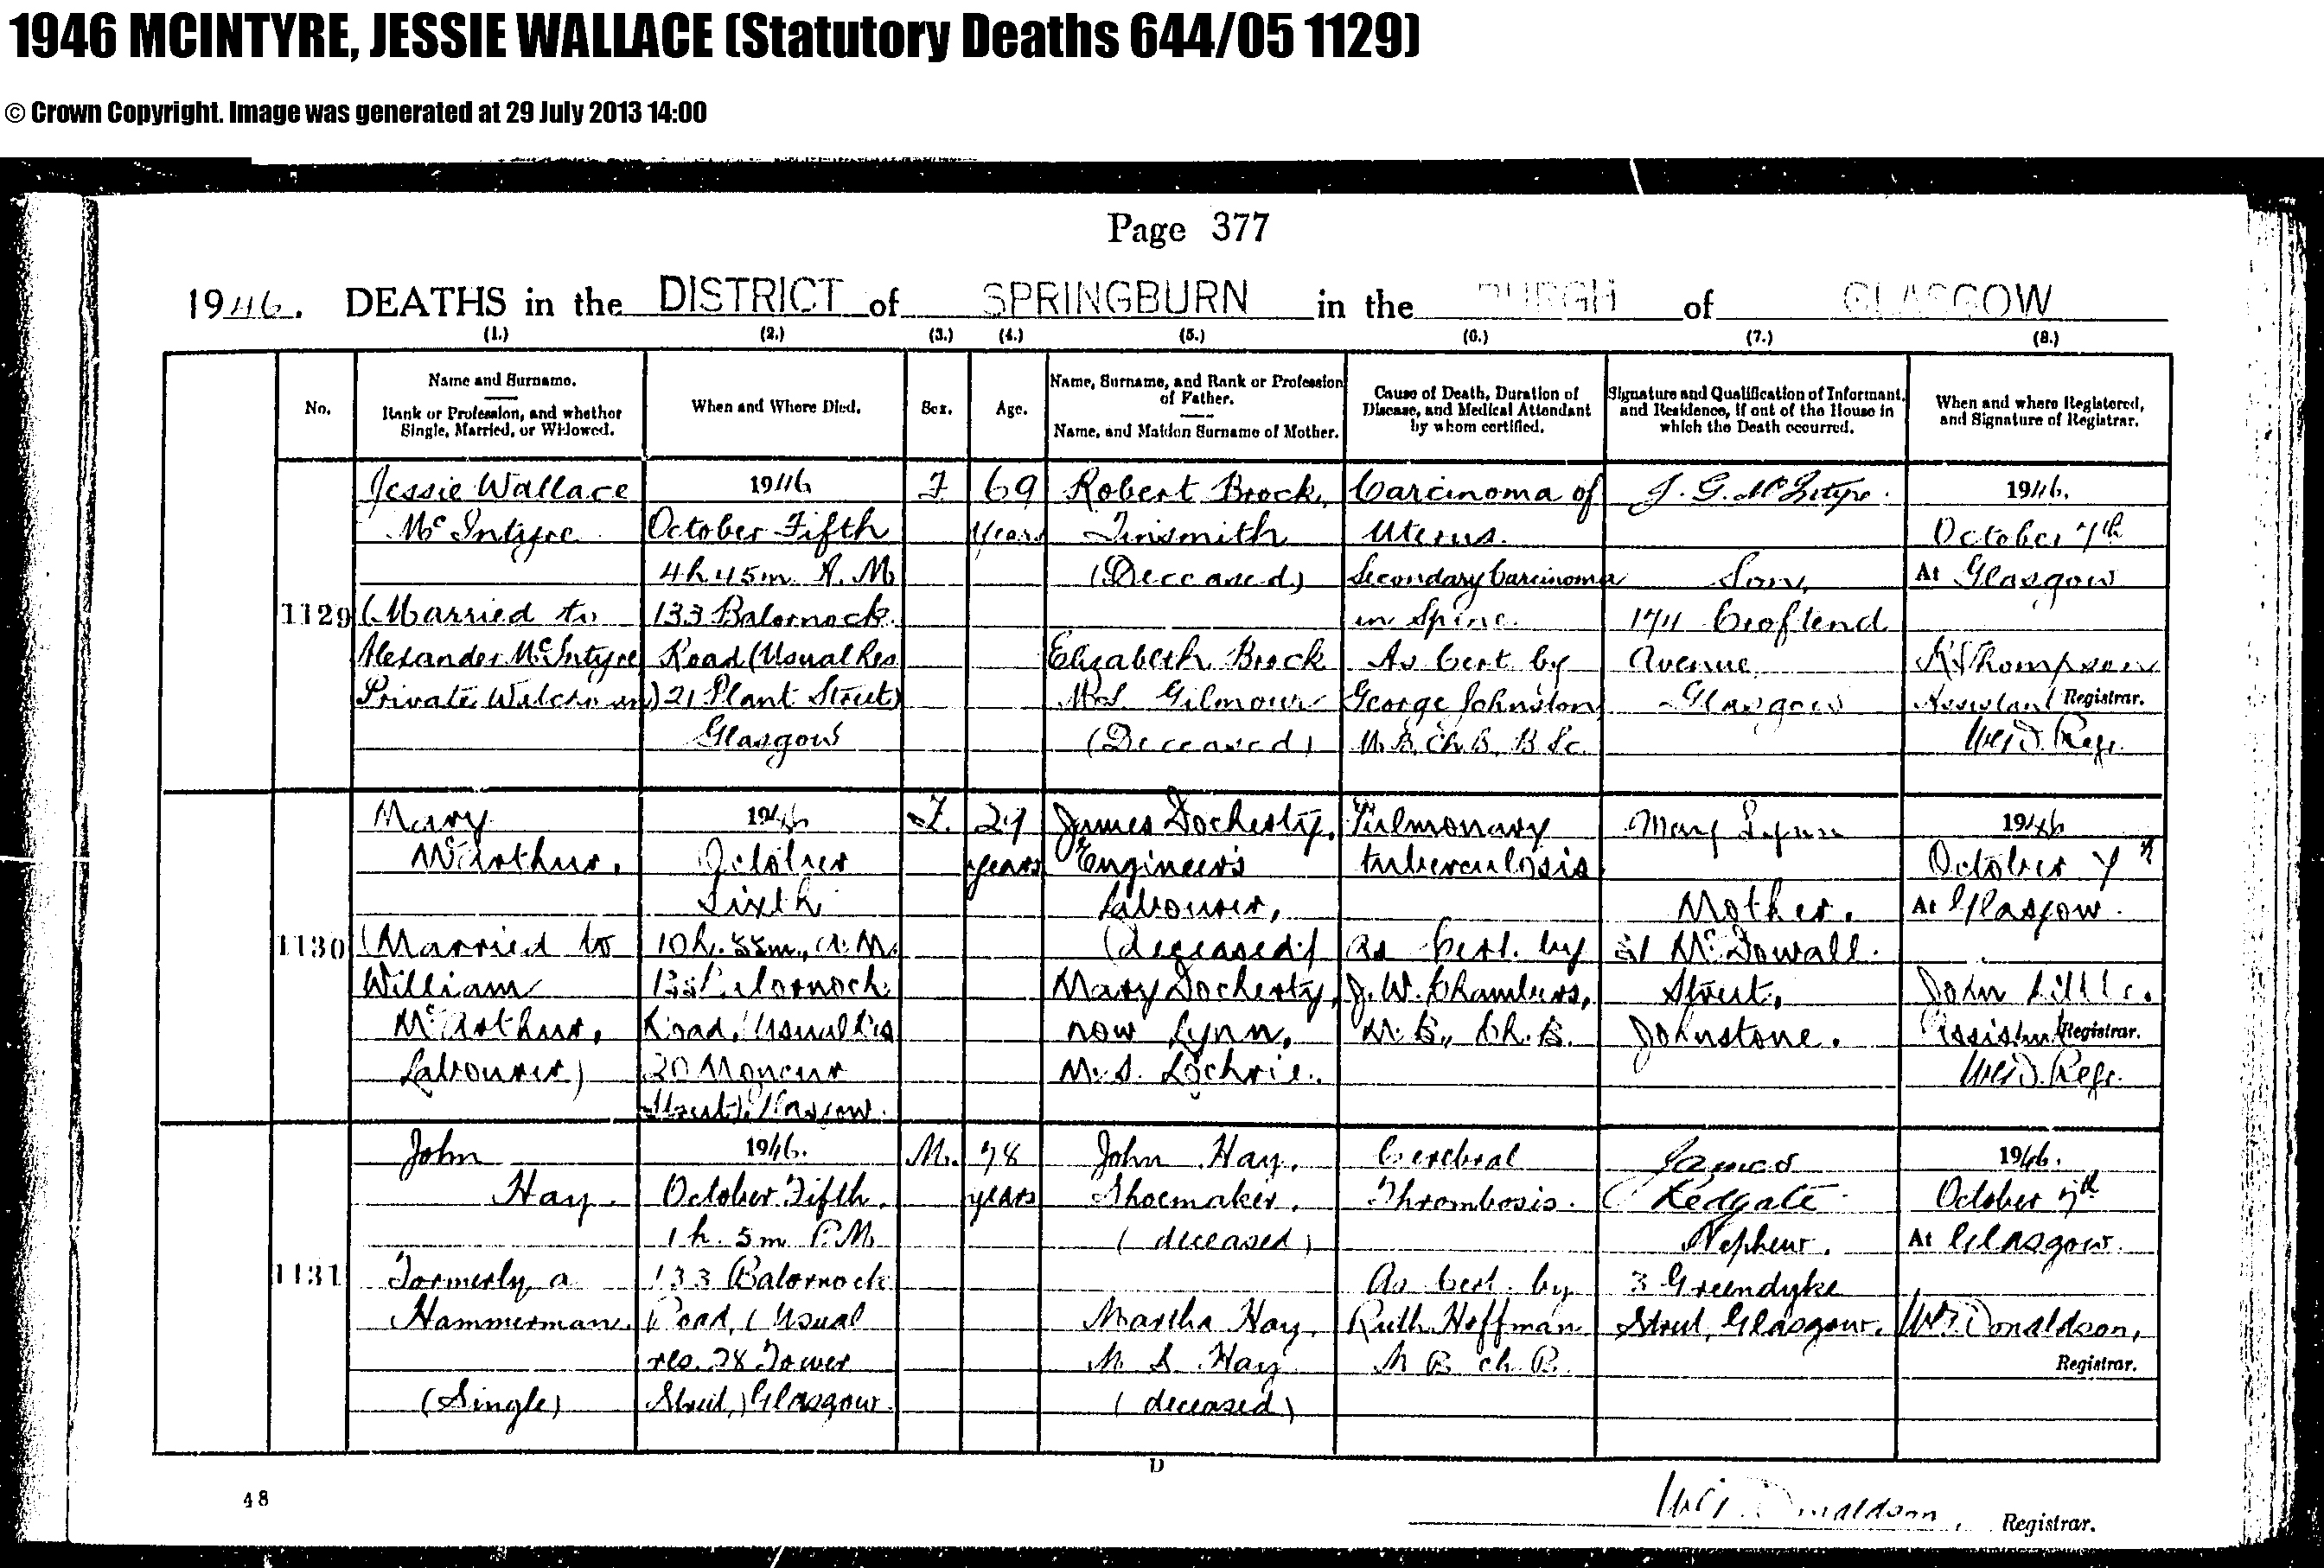 1946 MCINTYRE, JESSIE WALLACE (Statutory Deaths 644/05 1129)
© Crown Copyright. Image was generated at 29 July 2013 14:00
Page 377
1946. DEATHS in the DISTRICT of SPRINGBURN in the BURGH of GLASGOW
(1.) (2.) (3.) (4.) (5.) (6.) (7.) (8.)
No.
Name and Surname.
Rank or Profession, and whether
Single, Married, or Widowed.
When and Where Died.
Sex.
Age.
Name, Surname, and Rank or Profession
of Father.
Name, and Maiden Surname of Mother.
Cause of Death, Duration of
Disease, and Medical Attendant
by whom certified.
Signature and Qualification of Informant,
and Residence, if out of the House in
which the Death occurred.
When and where Registered,
and Signature of Registrar.
1129
Jessie Wallace
McIntyre
(Married to
Alexander McIntyre
Private Watchman)
1946
October Fifth
4h 45m A.M.
133 Balornock
Road (Usual Res
21 Plant Street)
Glasgow
F
69
years
Robert Brock,
Tinsmith
(Deceased)
Elizabeth Brock
M.S. Gilmour
(Deceased)
Carcinoma of
Uterus.
Secondary Carcinoma
in Spine.
As Cert by
George Johnston
M.B., Ch.B., B.Sc.
J. G. McIntyre.
Son,
174 Croftend
Avenue
Glasgow
1946.
October 7th
At Glasgow
Thompson
Assistant Registrar.
W.G.D. Regr.
1130
Mary
McArthur,
(Married to
William
McArthur,
Labourer)
1946
October
Sixth
10h. 55m., A.M.
133 Balornock
Road, (Usual Res
20 Moncur
Street), Glasgow.
F.
27
years
James Docherty,
Engineer's
Labourer,
(deceased)
Mary Docherty,
now Lynn,
M.S. Lochrie.
Pulmonary
tuberculosis
as Cert. by
J. W. Chambers,
M.B., Ch.B.
Mary Lynn
Mother.
McDowall
Street,
Johnstone.
1946
October 7th
At Glasgow.
John Little.
Assistant Registrar.
W.G.D. Regr.
1131
John
Hay.
Formerly a
Hammerman.
(Single)
1946.
October Fifth.
1h. 5m P.M.
133 Balornock
Road, (Usual
res. 28 Tower
Street,) Glasgow.
M.
78
years
John Hay.
Shoemaker.
(deceased)
Martha Hay.
M. S. Hay
(deceased)
Cerebral
Thrombosis.
As Cert. by
Ruth Hoffman
M B ch. B.
James
Redgate
Nephew.
3 Greendyke
Street, Glasgow.
1946.
October 7th
At Glasgow.
Donaldson,
Registrar.
D
48
Donaldson, Registrar.